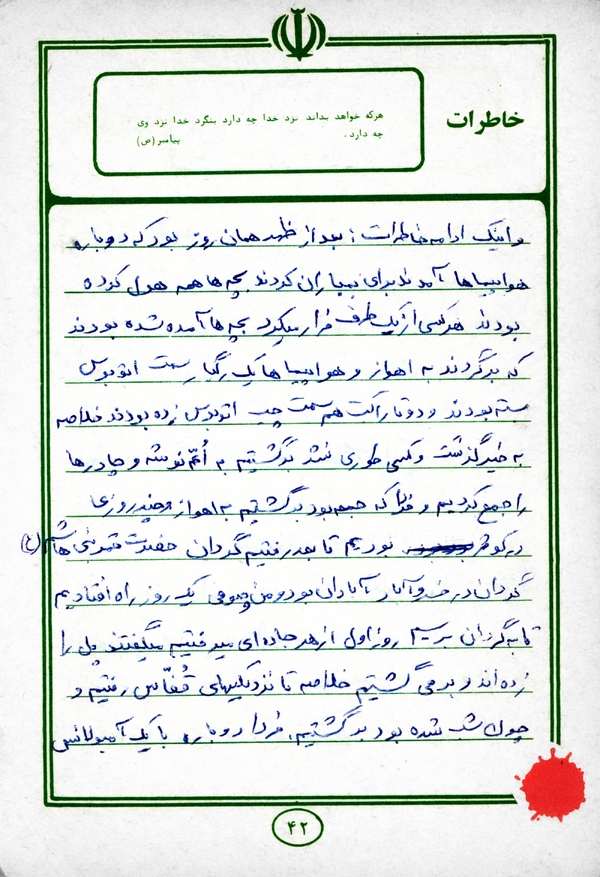 خاطرات
هرکه خواهد بداند نزد خدا چه دارد بنگرد خدا نزد وی
چه دارد.
پیامبر(ص)
و اینک ادامه خاطرات : بعد از ظهر همان روز بود که دوباره
هواپیماها آمدند برای بمباران کردند بچه ها همه هول کرده
بودند هرکسی از یک طرف فرار میکرد بچه ها آماده شده بودند
که برگردند به اهواز و هواپیماها یک رگبار سمت اتوبوس
بسته بودند و دو تا راکت هم سمت چپ اتوبوس زده بودند خلاصه
به خیر گذشت و کسی طوری نشد برگشتیم به اُمّ نوشه و چادرها
را جمع کردیم و فردا که جمعه بود برگشتیم به اهواز و چند روزی
در بودیم تا بعد رفتیم گردان حضرت قمر بنی هاشم (ع)
گردان در خسروآباد آبادان بود و من و صوفی یک روز راه افتادیم
تا به گردان برسیم روز اول از هر جاده ای میرفتیم میگفتند پل را
زده اند و برمی گشتیم خلاصه تا نزدیکیهای قُفّاس رفتیم و
چون شب شده بود برگشتیم. فردا دوباره با یک آمبولانس
۴۲